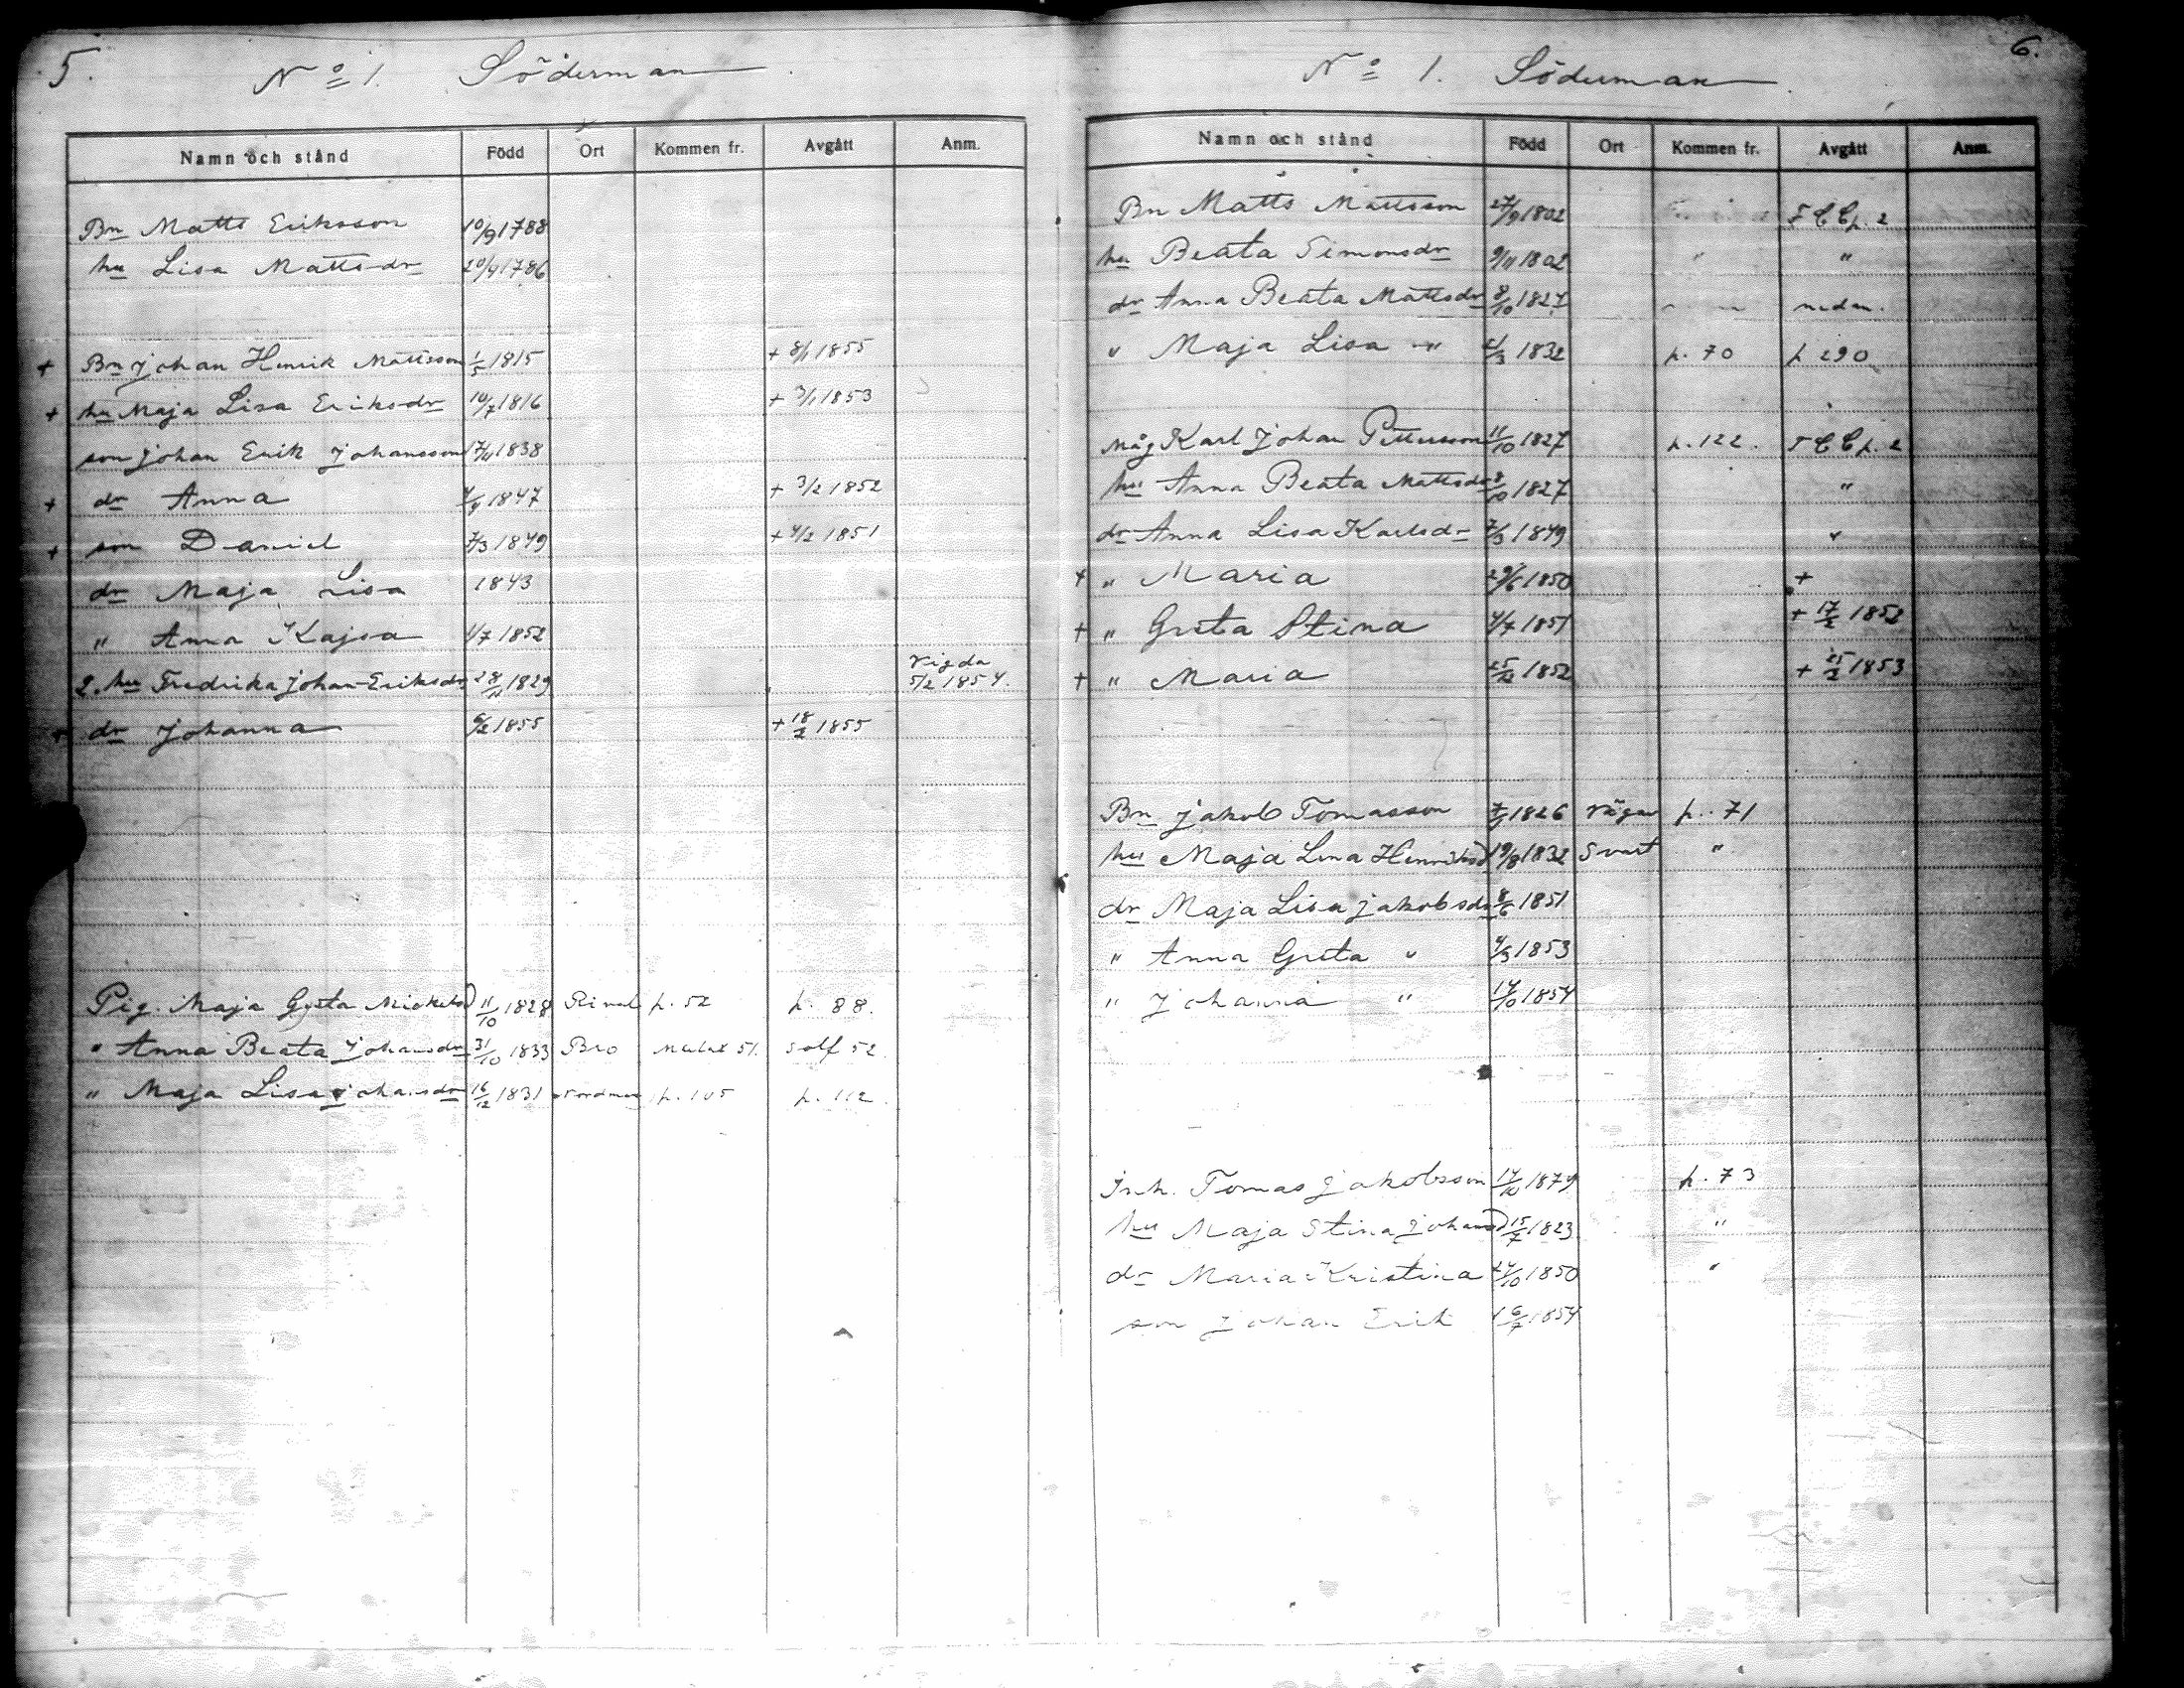 5.
No 1. Söderman
Namn och stånd Född Ort Kommen fr. Avgått Anm.
Bn Matts Eriksson 10/9 1788
hu Lisa Mattsdr 20/9 1786
+ Bn Johan Henrik Mattsson 1/5 1815 + 8/1 1855
+ hu Maja Lisa Eriksdr 10/7 1816 + 3/1 1853
son Johan Erik Johansson 1838
+ dr Anna 1847 + 3/2 1852
+ son Daniel 7/3 1849 + 4/2 1851
dr Maja Lisa 1843
" Anna Kajsa 1/7 1852
2. hu Fredrika Johan-Eriksdr 1829 vigda 5/2 1854.
+ dr Johanna 6/2 1855 + 18/2 1855
Pig. Maja Greta Mickelsd 11/10 1828 Rimal p. 52 p. 88.
" Anna Beata Johansdr 31/10 1833 Bro Malax 51. Solf 52.
" Maja Lisa Johansdr 16/12 1831 Nordman p. 105 p. 112.
6.
No 1. Söderman
Namn och stånd Född Ort Kommen fr. Avgått Anm.
Bn Matts Mattsson 27/9 1802 F C C p. 2
hu Beata Simonsdr 9/11 1802 " "
dr Anna Beata Mattsdr 8/10 1827 nedan.
" Maja Lisa " 1832 p. 70 p 290
Måg Karl Johan Pettersson 11/10 1827 p. 122. F C C p. 2
hu Anna Beata Mattsdr 8/10 1827 "
dr Anna Lisa Karlsdr 7/3 1849 "
+ " Maria 29/6 1850 +
+ " Greta Stina 4/7 1851 + 17/2 1852
+ " Maria 1852 + 1853
Bn Jakob Tomasson 1826 Vägar p. 71
hu Maja Lena Henriksd 19/8 1832 Svart "
dr Maja Lisa Jakobsdr 8/6 1851
" Anna Greta " 1853
" Johanna " 1854
Inh. Tomas Jakobsson 1879 p. 73
hu Maja Stina Johansd 15/7 1823 "
dr Maria Kristina 1850 "
son Johan Erik 1854